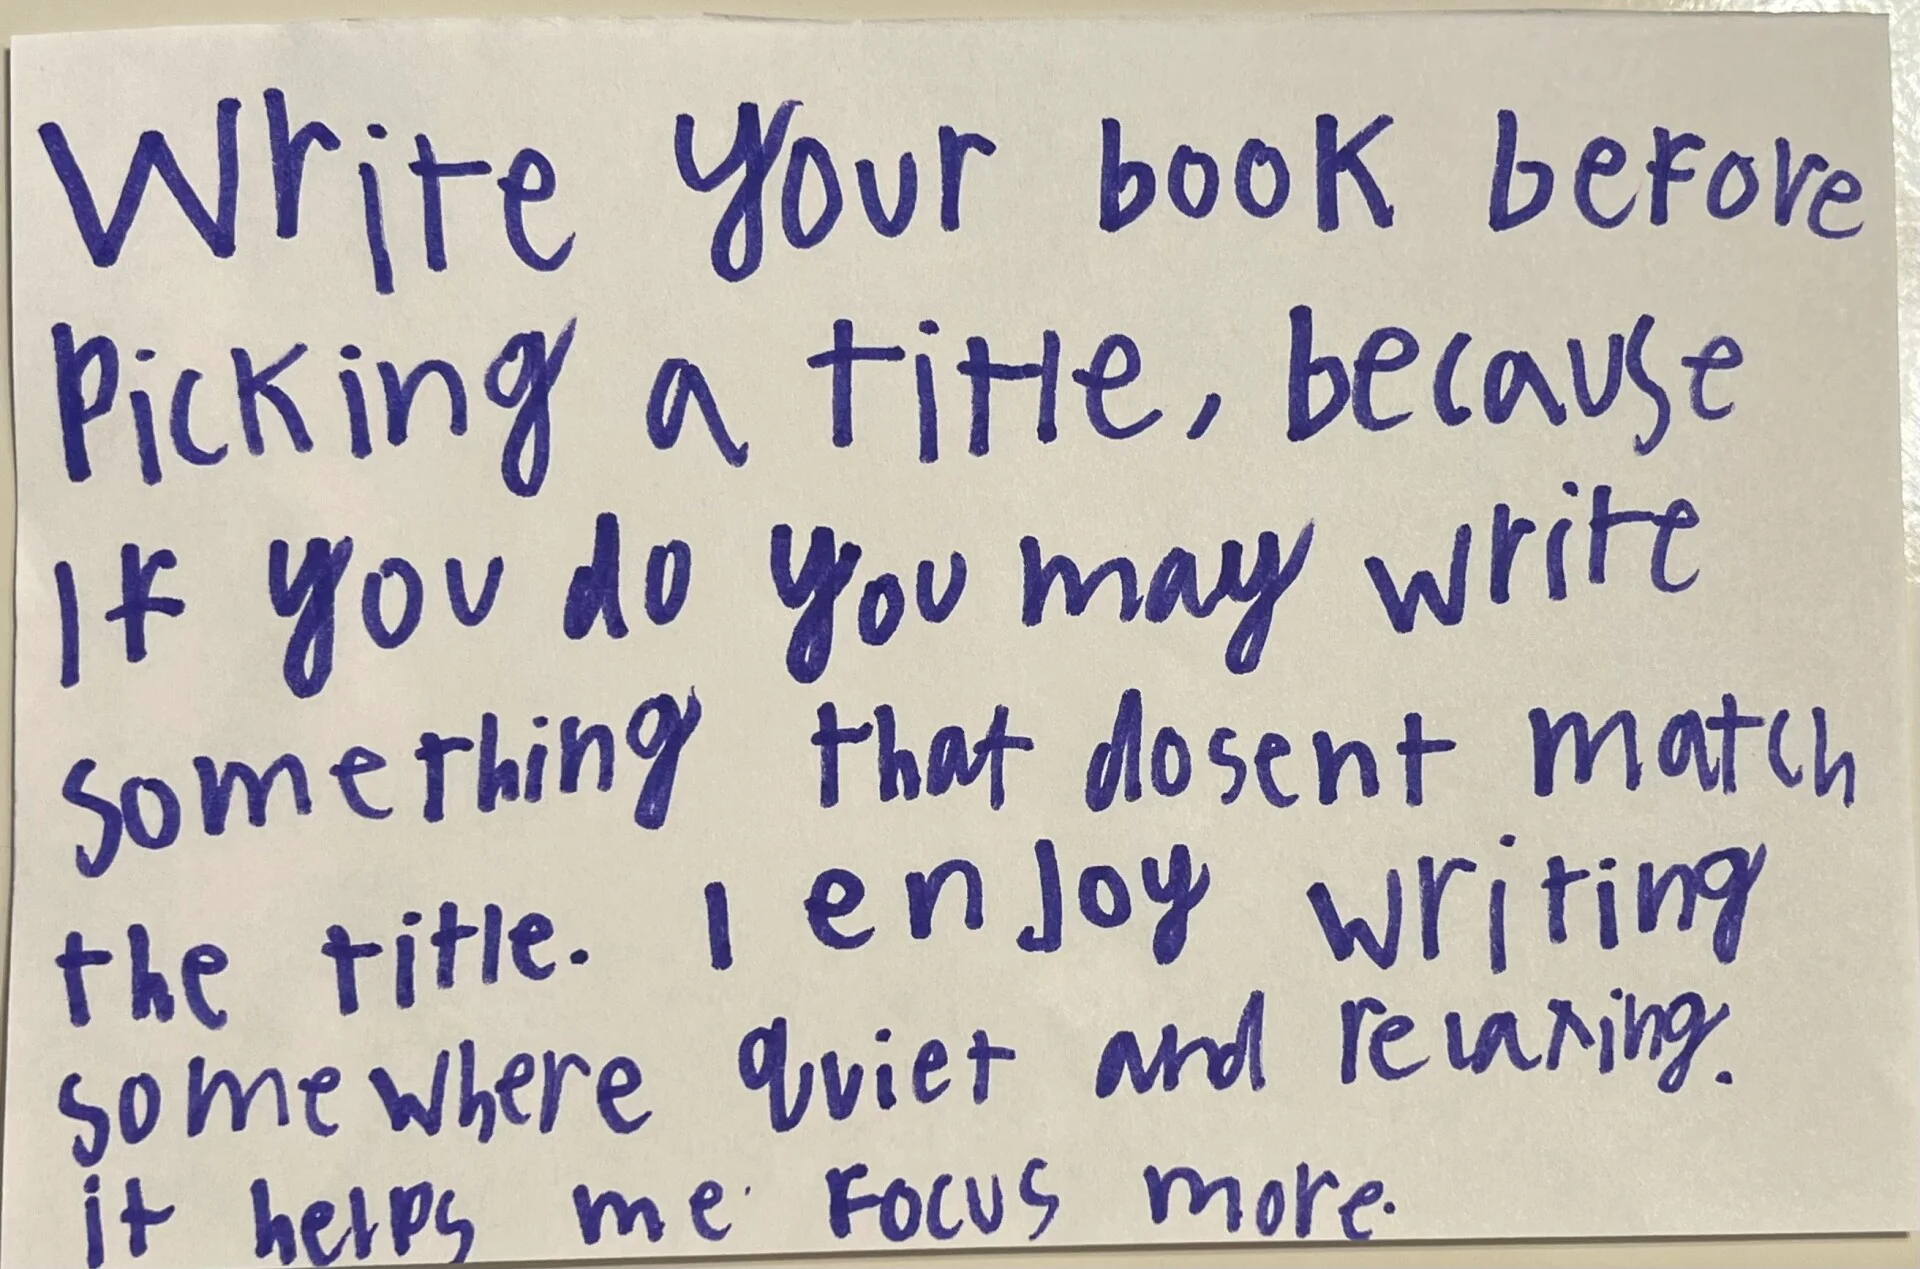 Write your book before
Picking a title, because
If you do you may write
something that dosent match
the title. I enjoy writing
somewhere quiet and relaxing.
it helps me Focus more.